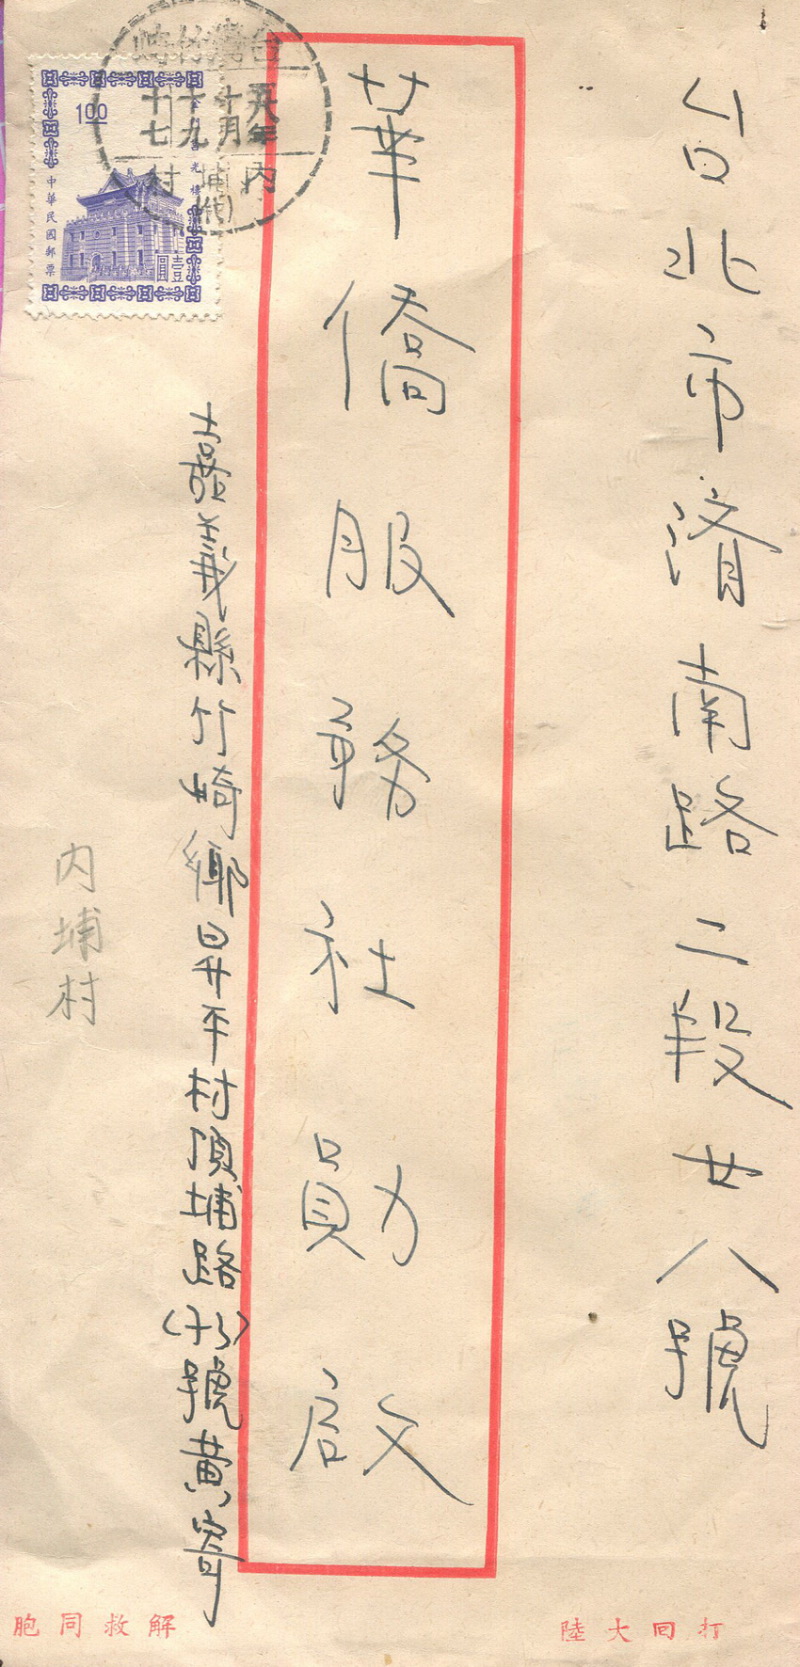 台北市濟南路二段廿八號
華僑服務社勛啟
嘉義縣竹崎鄉昇平村頂埔路(十六)號黃寄
內埔村
台灣竹崎
五八年
十月
十九
十七
內埔村
(代)
1.00
中華民國郵票
莒光樓
壹圓
打回大陸
解救同胞